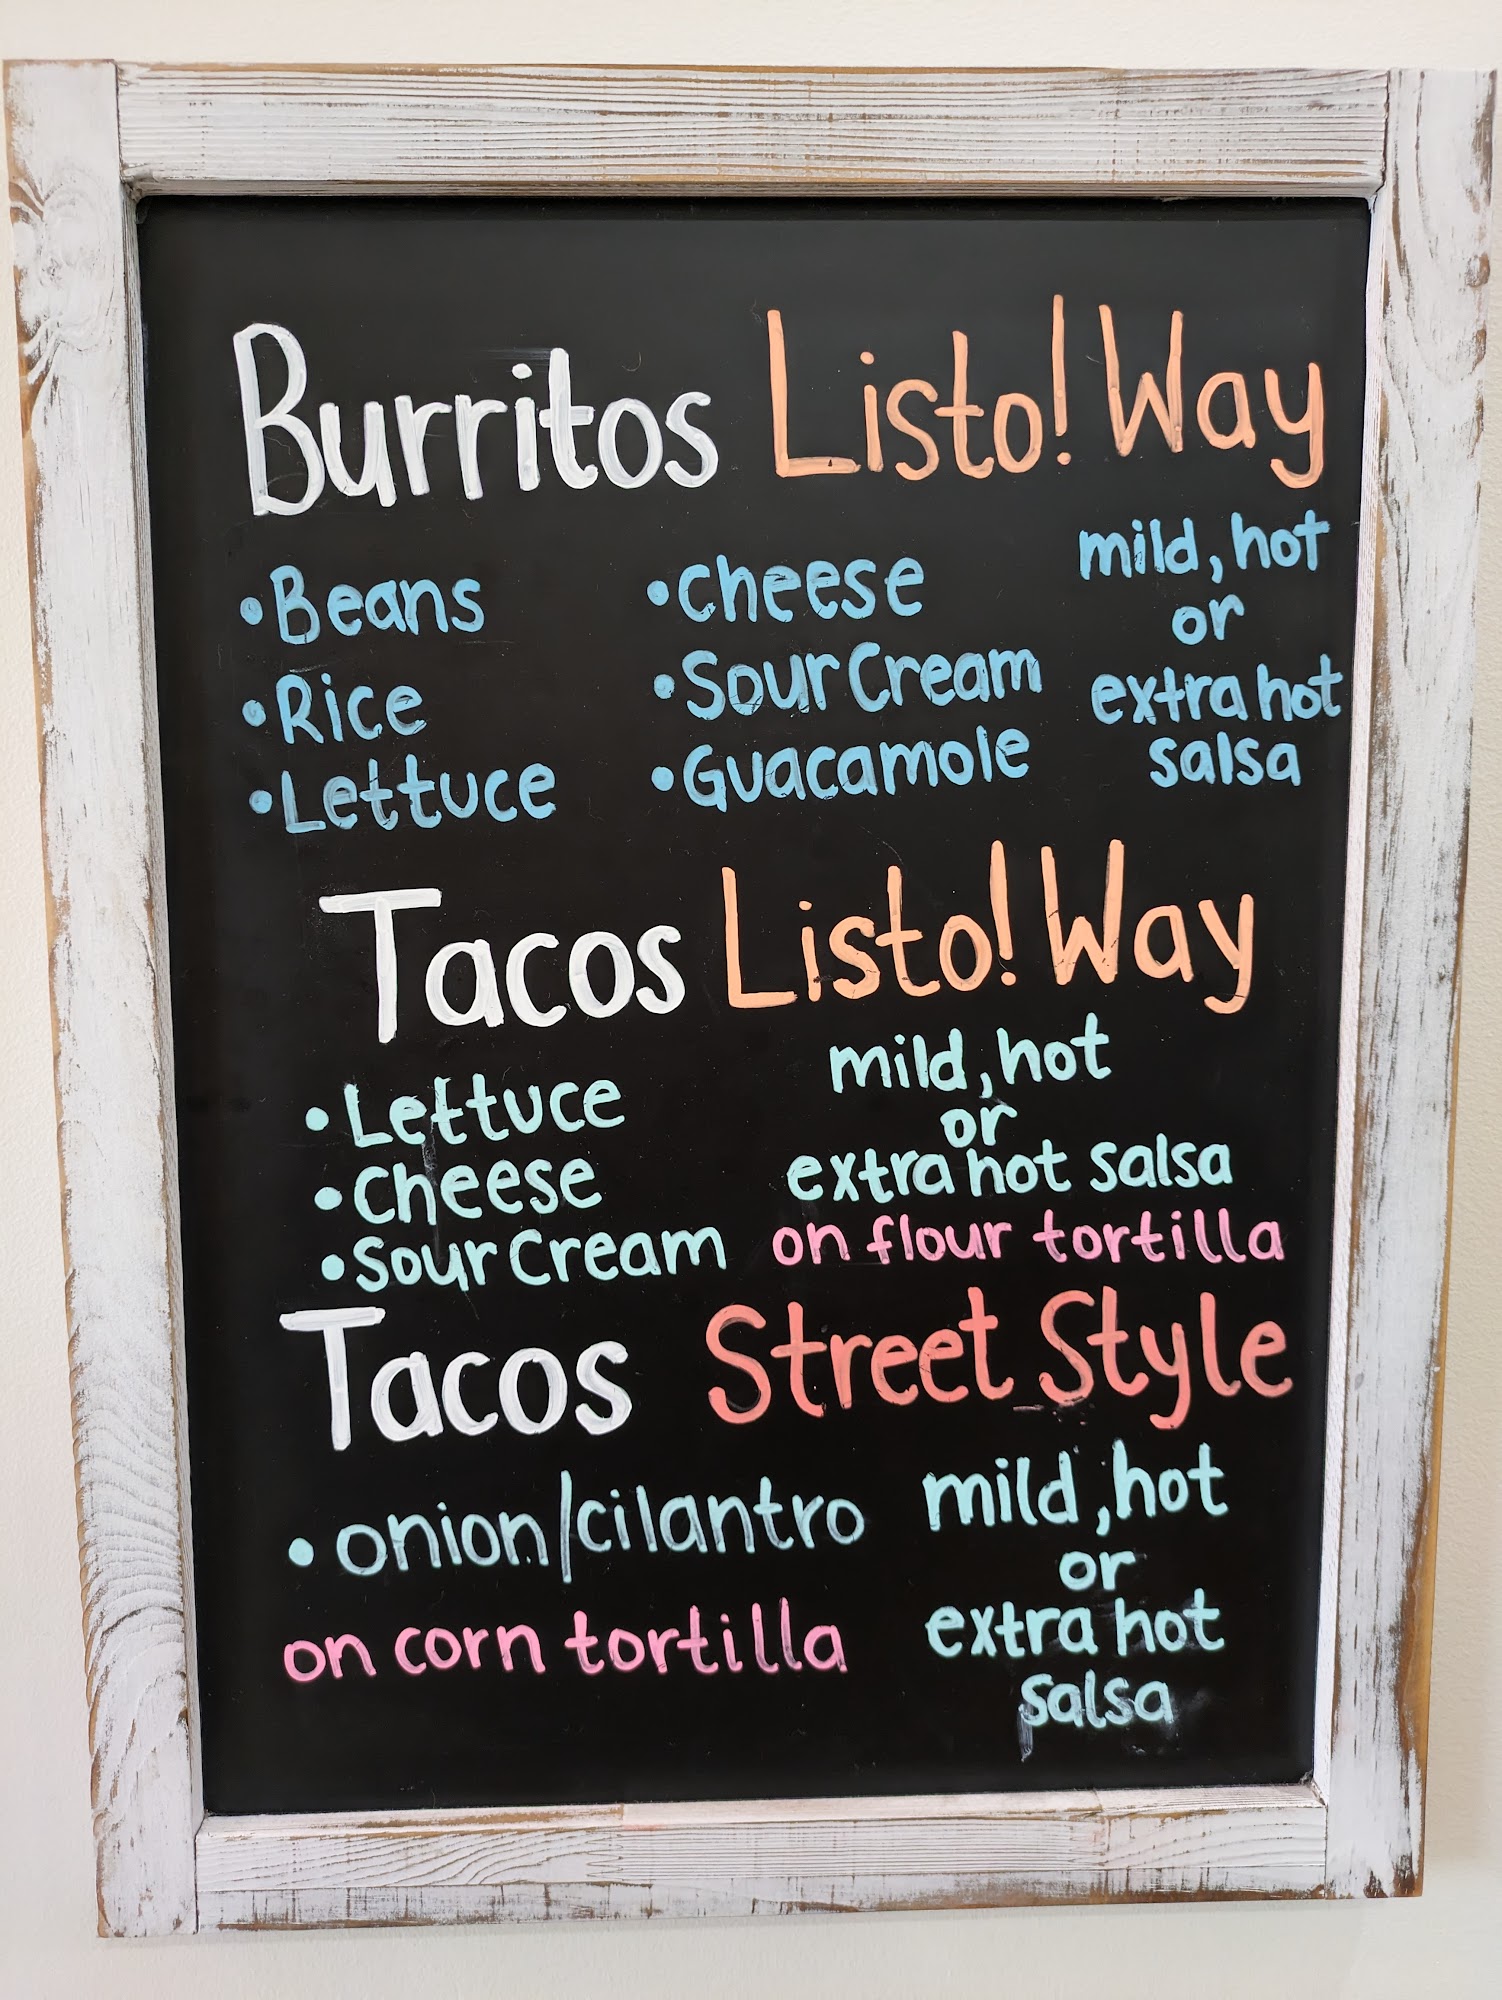 Burritos Listo! Way
•Beans
•Rice
•Lettuce
•cheese
•Sour Cream
•Guacamole
mild, hot
or
extra hot
salsa
Tacos Listo! Way
•Lettuce
•cheese
•Sour Cream
mild, hot
or
extra hot salsa
on flour tortilla
Tacos Street Style
•onion/cilantro
on corn tortilla
mild, hot
or
extra hot
salsa